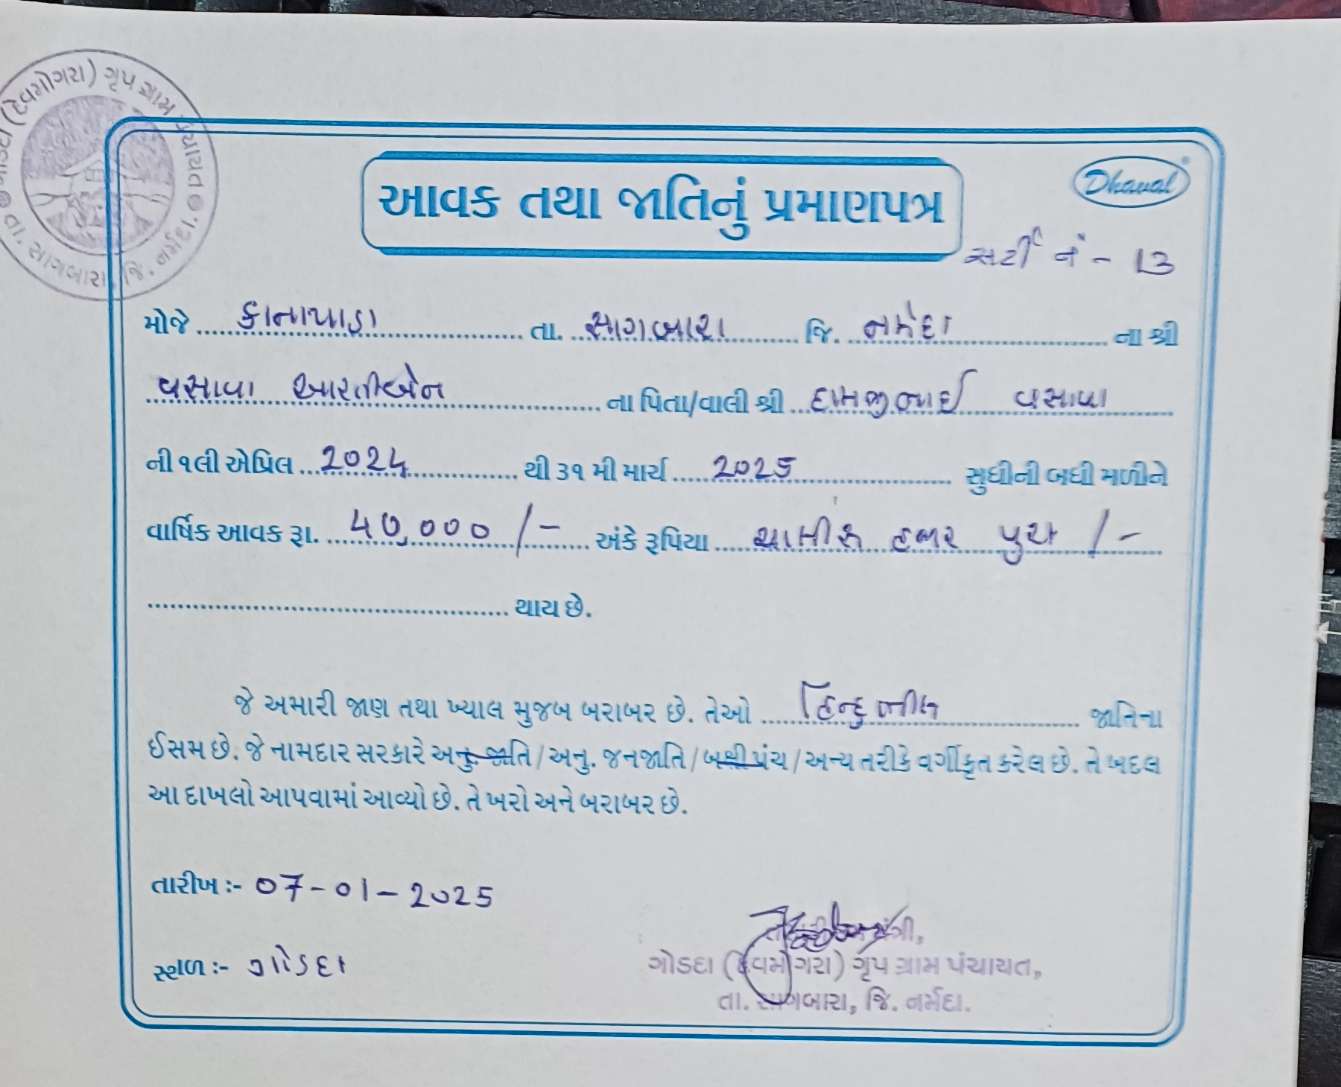 (દેવમોગરા) ગૃપ ગ્રામ પંચાયત
તા. સાગબારા, જિ. નર્મદા.
Dhaval
આવક તથા જાતિનું પ્રમાણપત્ર
સર્ટી નં - 13
મોજે કાનાપાડા તા. સાગબારા જિ. નર્મદા ના શ્રી
વસાવા આરતીબેન ના પિતા/વાલી શ્રી દામજીભાઈ વસાવા
ની ૧લી એપ્રિલ 2024 થી ૩૧ મી માર્ચ 2025 સુધીની બધી મળીને
વાર્ષિક આવક રૂા. 40,000/- અંકે રૂપિયા ચાલીસ હજાર પુરા /-
થાય છે.
જે અમારી જાણ તથા ખ્યાલ મુજબ બરાબર છે. તેઓ હિન્દુ ભીલ જાતિના
ઈસમ છે. જે નામદાર સરકારે અનુ. જાતિ / અનુ. જનજાતિ / બક્ષીપંચ / અન્ય તરીકે વર્ગીકૃત કરેલ છે. તે બદલ
આ દાખલો આપવામાં આવ્યો છે. તે ખરો અને બરાબર છે.
તારીખ :- 07-01-2025
સ્થળ :- ગોડદા
ગોડદા (દેવમોગરા) ગૃપ ગ્રામ પંચાયત,
તા. સાગબારા, જિ. નર્મદા.